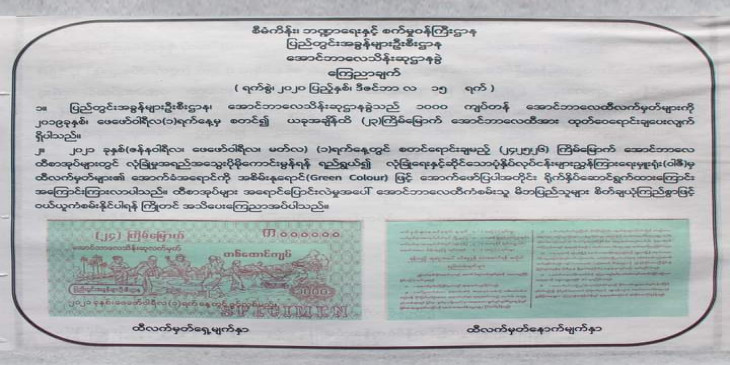 စီမံကိန်း၊ ဘဏ္ဍာရေးနှင့် စက်မှုဝန်ကြီးဌာန
ပြည်တွင်းအခွန်များဦးစီးဌာန
အောင်ဘာလေသိန်းဆုဌာနခွဲ
ကြေညာချက်
( ရက်စွဲ၊ ၂၀၂၀ ပြည့်နှစ်၊ ဒီဇင်ဘာ လ ၁၅ ရက် )
၁။ ပြည်တွင်းအခွန်များဦးစီးဌာန၊ အောင်ဘာလေသိန်းဆုဌာနခွဲသည် ၁၀၀၀ ကျပ်တန် အောင်ဘာလေထီလက်မှတ်များကို
၂၀၁၉ခုနှစ်၊ ဖေဖော်ဝါရီလ(၁)ရက်နေ့မှ စတင်၍ ယခုအချိန်ထိ (၂၃)ကြိမ်မြောက် အောင်ဘာလေထီအား ထုတ်ဝေရောင်းချပေးလျက်
ရှိပါသည်။
၂။ ၂၀၂၁ ခုနှစ်(ဇန်နဝါရီလ၊ ဖေဖော်ဝါရီလ၊ မတ်လ) (၁)ရက်နေ့တွင် စတင်ရောင်းချမည့် (၂၄၊၂၅၊၂၆) ကြိမ်မြောက် အောင်ဘာလေ
ထီစာအုပ်များတွင် လုံခြုံမှုအရည်အသွေးပိုမိုကောင်းမွန်ရန် ရည်ရွယ်၍ လုံခြုံရေးနှင့်ဆိုင်သောပုံနှိပ်လုပ်ငန်းများညွှန်ကြားရေးမှူးရုံး(ပါဠိ)မှ
ထီလက်မှတ်များ၏ အောက်ခံအရောင်ကို အစိမ်းနုရောင်(Green Colour) ဖြင့် အောက်ဖော်ပြပါအတိုင်း ရိုက်နှိပ်ဆောင်ရွက်ထားကြောင်း
အကြောင်းကြားလာပါသည်။ ထီစာအုပ်များ အရောင်ပြောင်းလဲမှုအပေါ် အောင်ဘာလေထီကံစမ်းသူ မိဘပြည်သူများ စိတ်ချယုံကြည်စွာဖြင့်
ဝယ်ယူကံစမ်းနိုင်ပါရန် ကြိုတင် အသိပေးကြေညာအပ်ပါသည်။
(၂၄) ကြိမ်မြောက်
အောင်ဘာလေသိန်းဆုလက်မှတ်
တစ်ထောင်ကျပ်
၁၀၀၀
SPECIMEN
ထီလက်မှတ်ရှေ့မျက်နှာ
ထီလက်မှတ်နောက်မျက်နှာ